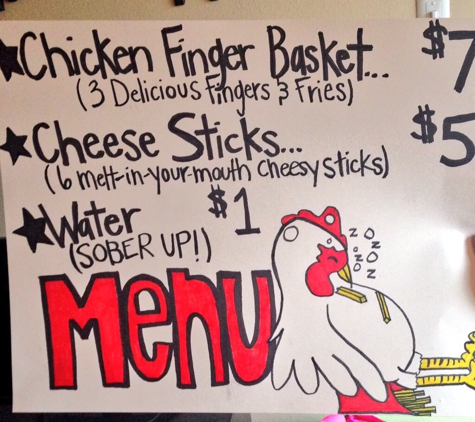 ★Chicken Finger Basket... $7
(3 Delicious Fingers & Fries)
★Cheese Sticks... $5
(6 melt-in-your-mouth cheesy sticks)
★Water $1
(SOBER UP!)
Menu
z z z z z z